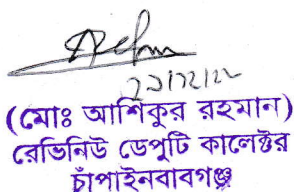 ২১/১২/২২
(মোঃ আশিকুর রহমান)
রেভিনিউ ডেপুটি কালেক্টর
চাঁপাইনবাবগঞ্জ